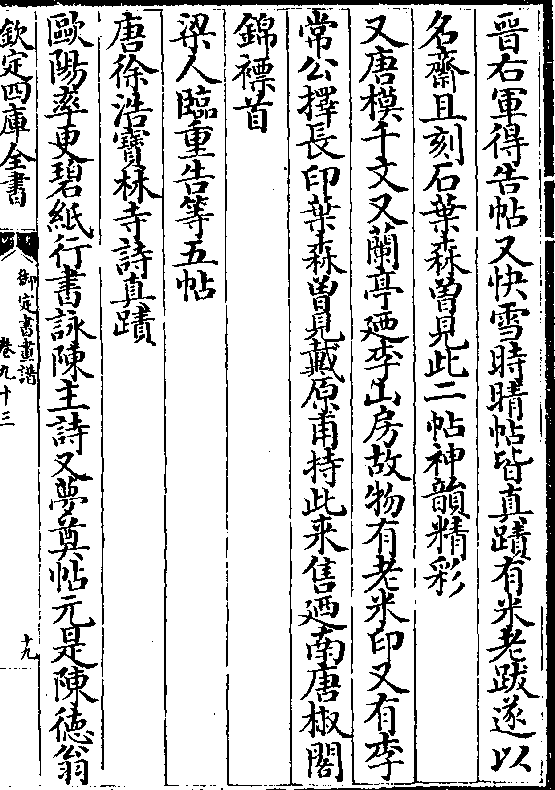 晉右軍得告帖又快雪時晴帖皆真蹟有米老跋遂以
名齋且刻石葉森曾見此二帖神韻精彩
又唐模千文又蘭亭廼李山房故物有老米印又有李
常公擇長印葉森曾見戴原甫持此來售廼南唐椒閣
錦褾首
梁人臨重告等五帖
唐徐浩寶林寺詩真蹟
歐陽率更碧紙行書詠陳主詩又夢奠帖元是陳德翁
欽定四庫全書
御定書畫譜
卷九十三
十九